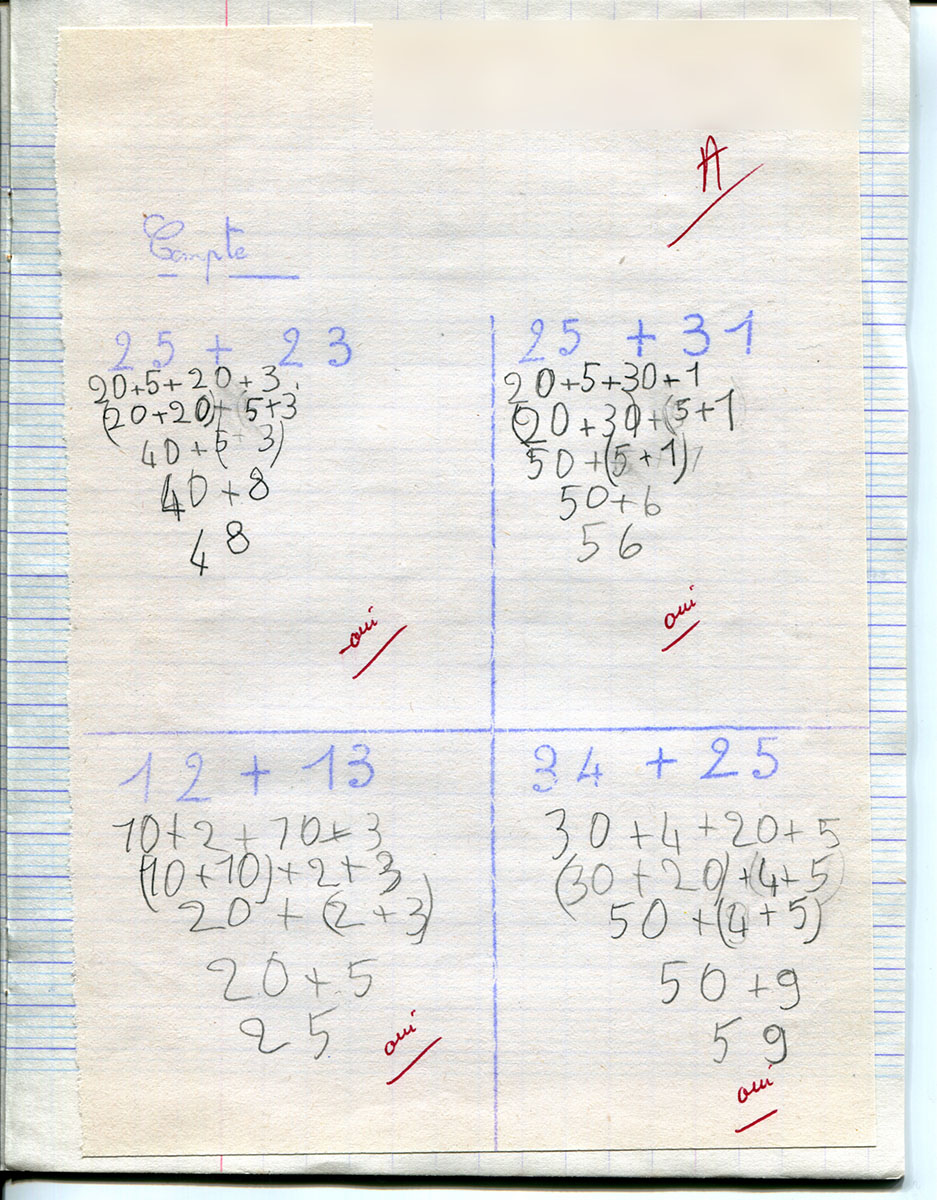 A
Compte
25 + 23
20+5+20+3
(20+20)+(5+3
40+5+3)
40+8
48
oui
25 + 31
20+5+30+1
(20+30)+(5+1)
50+(5+1)
50+6
56
oui
12 + 13
10+2+10+3
(10+10)+2+3
20+(2+3)
20+5
25
oui
34 + 25
30+4+20+5
(30+20)+(4+5)
50+(4+5)
50+9
59
oui